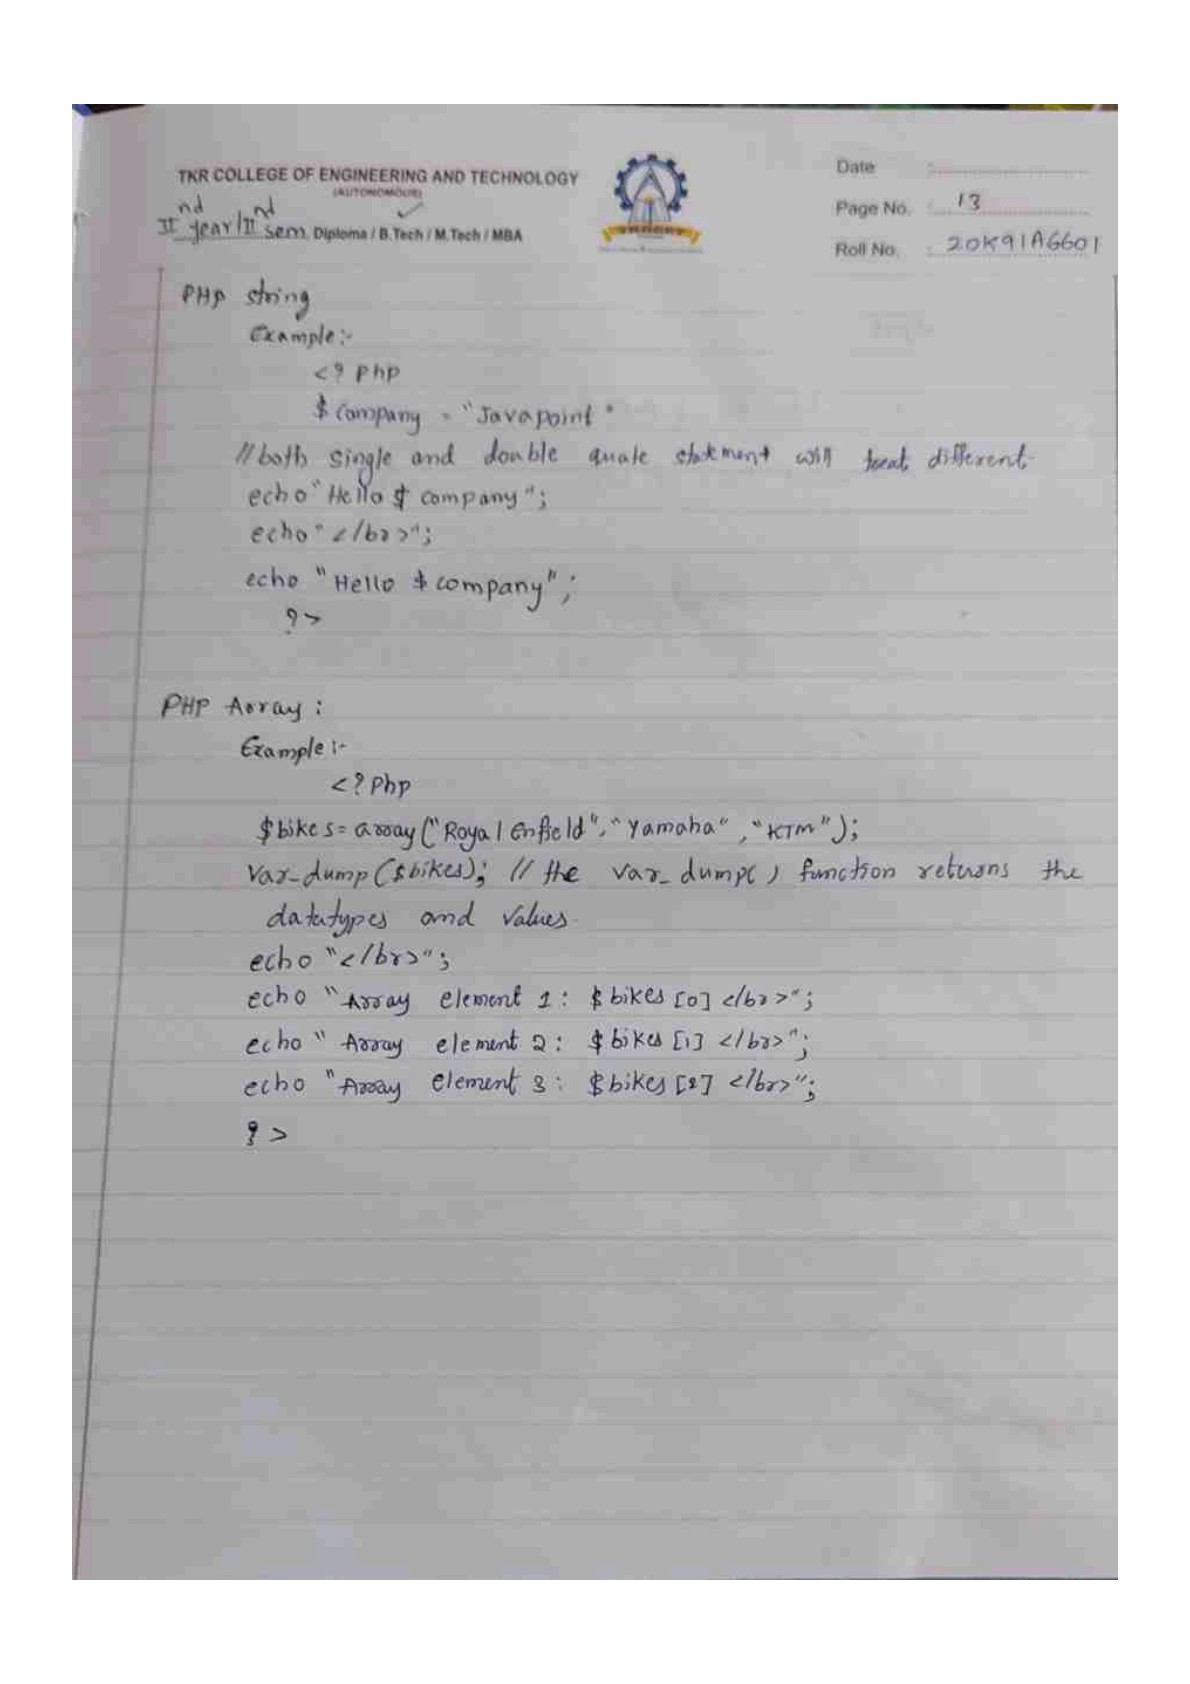 TKR COLLEGE OF ENGINEERING AND TECHNOLOGY
(AUTONOMOUS)
IInd year/IInd sem. Diploma / B.Tech / M.Tech / MBA
TKRCET
Date :
Page No. : 13
Roll No. : 20K91A6601
PHP string
Example:-
<? Php
$ Company = "Javapoint"
// both single and double quate statement will treat different
echo "Hello $ company";
echo "</br>";
echo "Hello $ company";
?>
PHP Array :
Example :-
<? Php
$bikes= array ("Royal Enfield", "Yamaha", "KTM");
Var_dump ($bikes); // the var_dump() function returns the
datatypes and values.
echo "</br>";
echo "Array element 1: $bikes [0] </br>";
echo "Array element 2: $bikes [1] </br>";
echo "Array element 3: $bikes [2] </br>";
? >